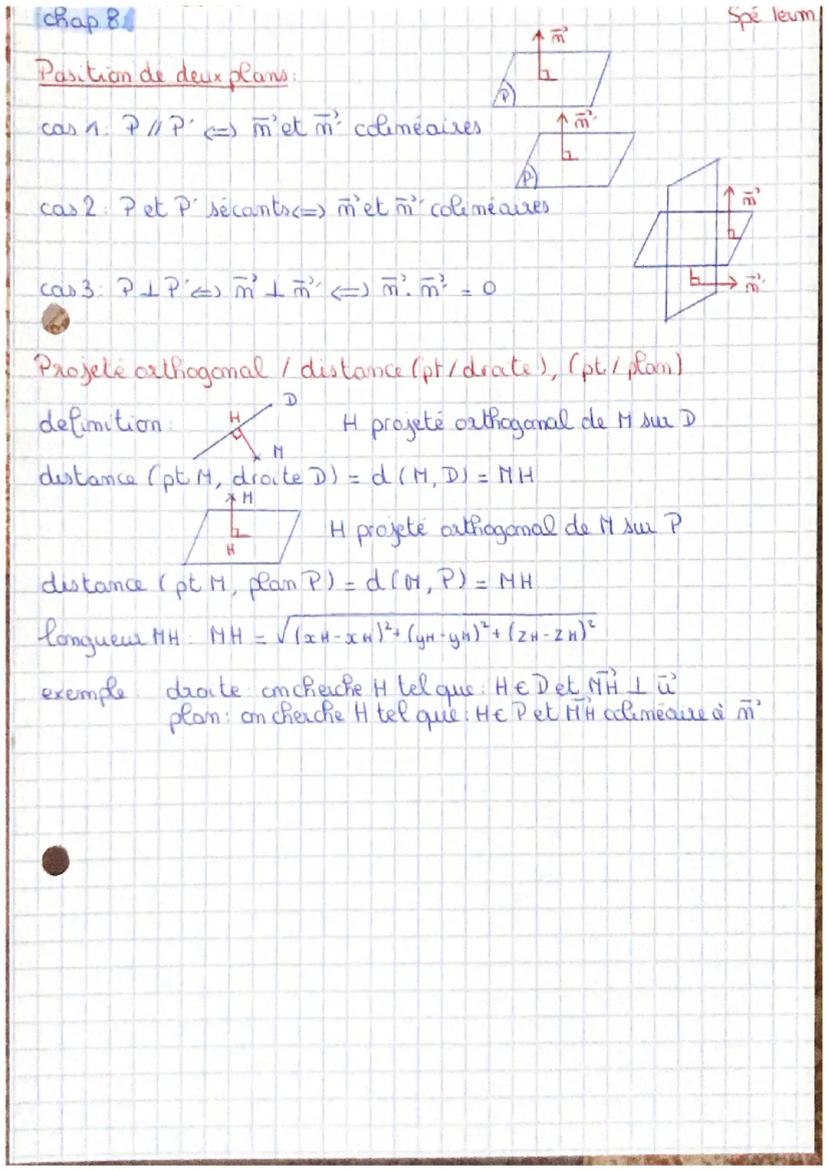 chap 8
Spé leum
Position de deux plans:
cas 1: P // P' <=> n⃗ et n⃗' colinéaires
n⃗
P
n⃗'
P'
cas 2: P et P' sécants <=> n⃗ et n⃗' colinéaires
n⃗
cas 3: P ⊥ P' <=> n⃗ ⊥ n⃗' <=> n⃗ . n⃗' = 0
n⃗'
Projeté orthogonal / distance (pt / droite), (pt / plan)
définition:
H
D
M
H projeté orthogonal de M sur D
distance (pt M, droite D) = d (M, D) = MH
M
H
H projeté orthogonal de M sur P
distance (pt M, plan P) = d (M, P) = MH
longueur MH: MH = √(xH - xM)² + (yH - yM)² + (zH - zM)²
exemple: droite: on cherche H tel que: H ∈ D et MH⃗ ⊥ u⃗
plan: on cherche H tel que: H ∈ P et MH⃗ colinéaire à n⃗